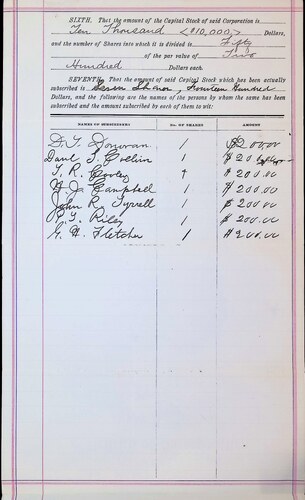 SIXTH. That the amount of the Capital Stock of said Corporation is
Ten Thousand ($10,000) Dollars,
and the number of Shares into which it is divided is Fifty
of the par value of Two
Hundred Dollars each.
SEVENTH. That the amount of said Capital Stock which has been actually
subscribed is Hundred
Dollars, and the following are the names of the persons by whom the same has been
subscribed and the amount subscribed by each of them to wit:
NAMES OF SUBSCRIBERS No. OF SHARES AMOUNT
D. J. Donovan 1 $200.00
1
J. R. $200.00
Campbell 1 $200.00
John R. Tyrrell 1 $200.00
Riley 1 $200.00
G. H. Fletcher 1 $200.00